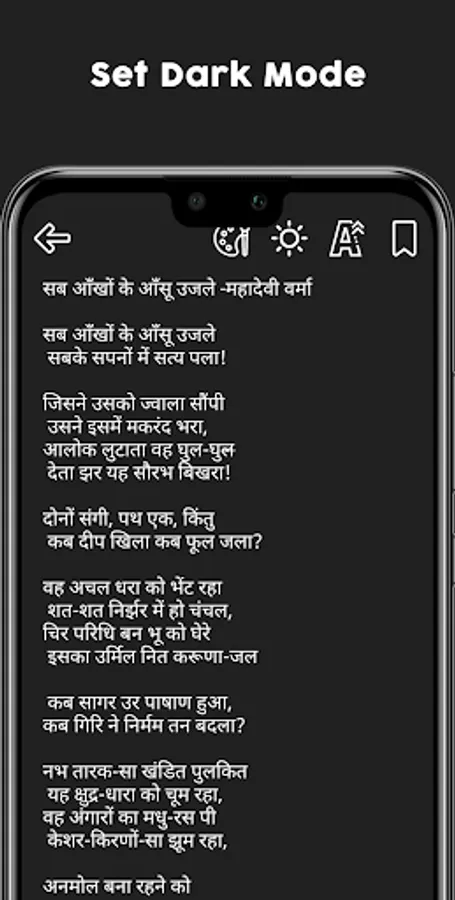 Set Dark Mode
सब आँखों के आँसू उजले -महादेवी वर्मा
सब आँखों के आँसू उजले
सबके सपनों में सत्य पला!
जिसने उसको ज्वाला सौंपी
उसने इसमें मकरंद भरा,
आलोक लुटाता वह घुल-घुल
देता झर यह सौरभ बिखरा!
दोनों संगी, पथ एक, किंतु
कब दीप खिला कब फूल जला?
वह अचल धरा को भेंट रहा
शत-शत निर्झर में हो चंचल,
चिर परिधि बन भू को घेरे
इसका उर्मिल नित करूणा-जल
कब सागर उर पाषाण हुआ,
कब गिरि ने निर्मम तन बदला?
नभ तारक-सा खंडित पुलकित
यह क्षुद्र-धारा को चूम रहा,
वह अंगारों का मधु-रस पी
केशर-किरणों-सा झूम रहा,
अनमोल बना रहने को